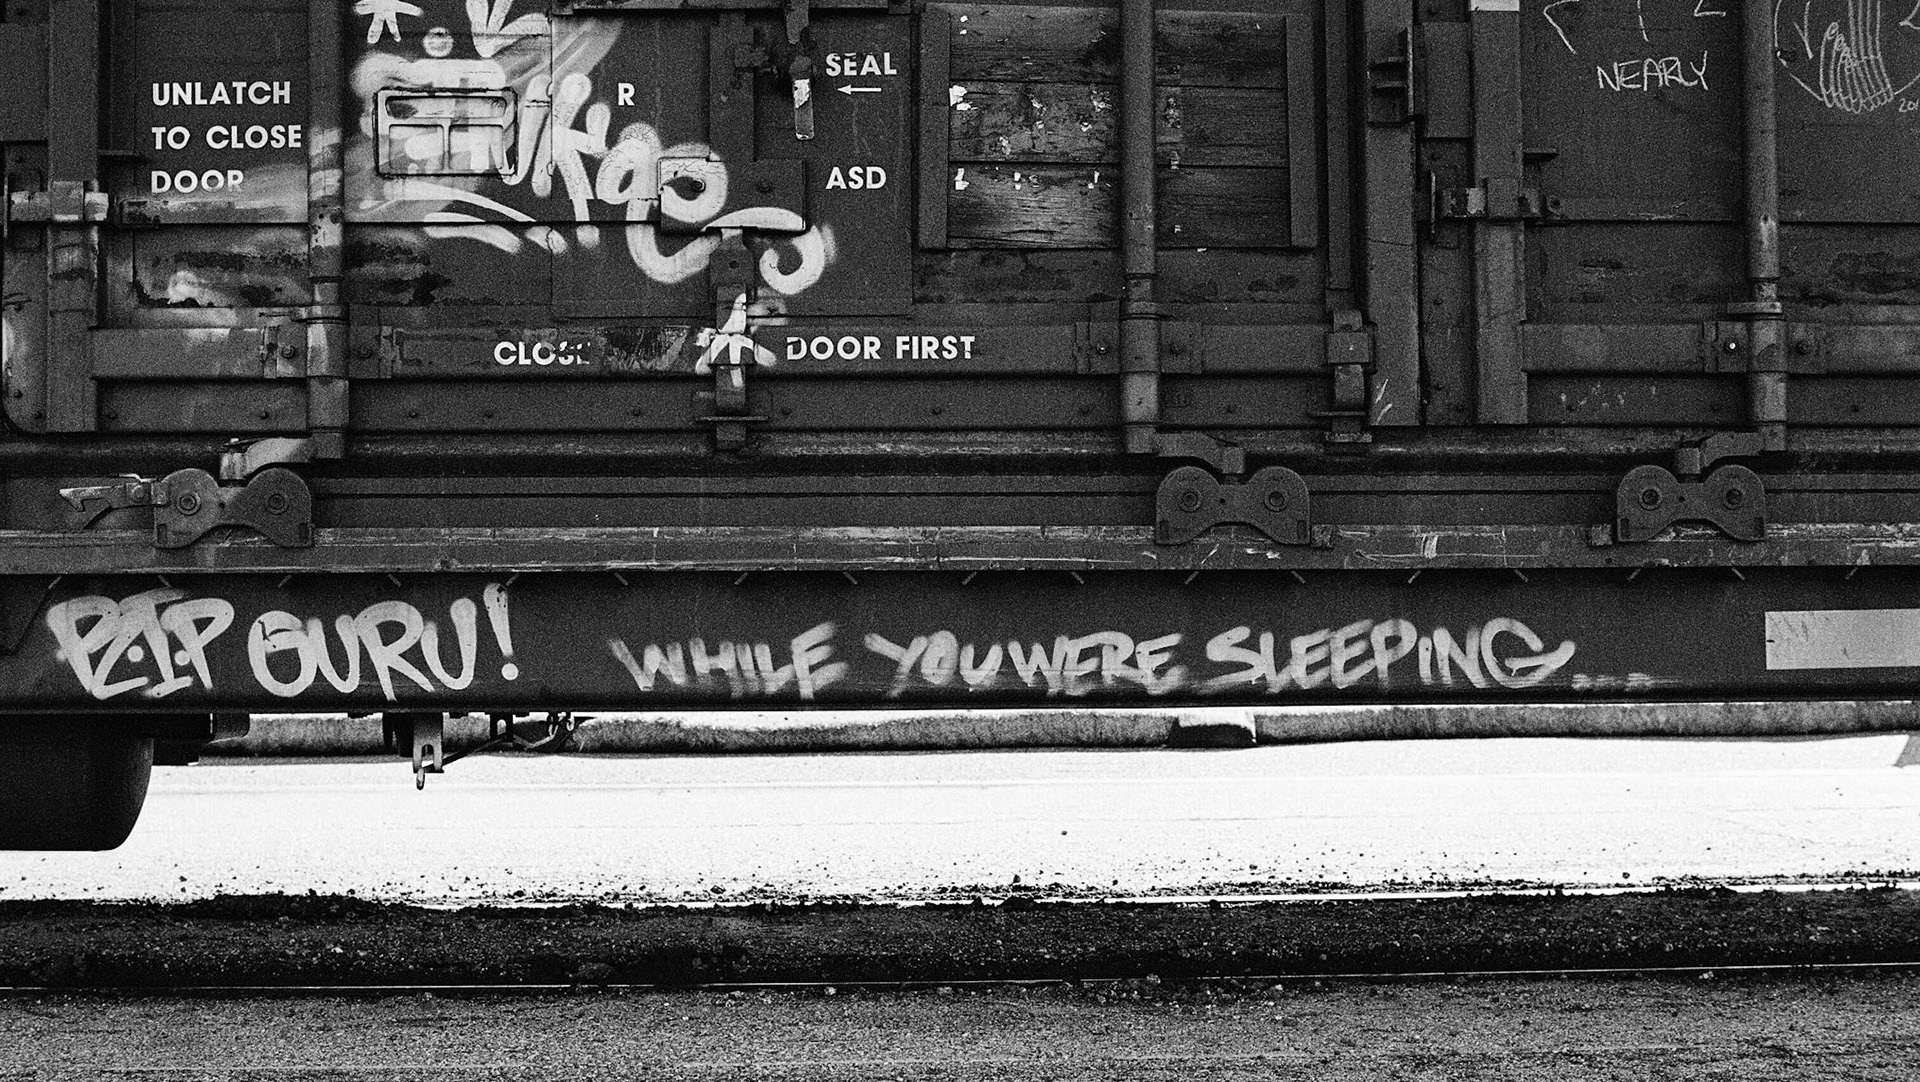 UNLATCH
TO CLOSE
DOOR
R
SEAL
ASD
NEARLY
CLOSE DOOR FIRST
R.I.P GURU!
WHILE YOU WERE SLEEPING...